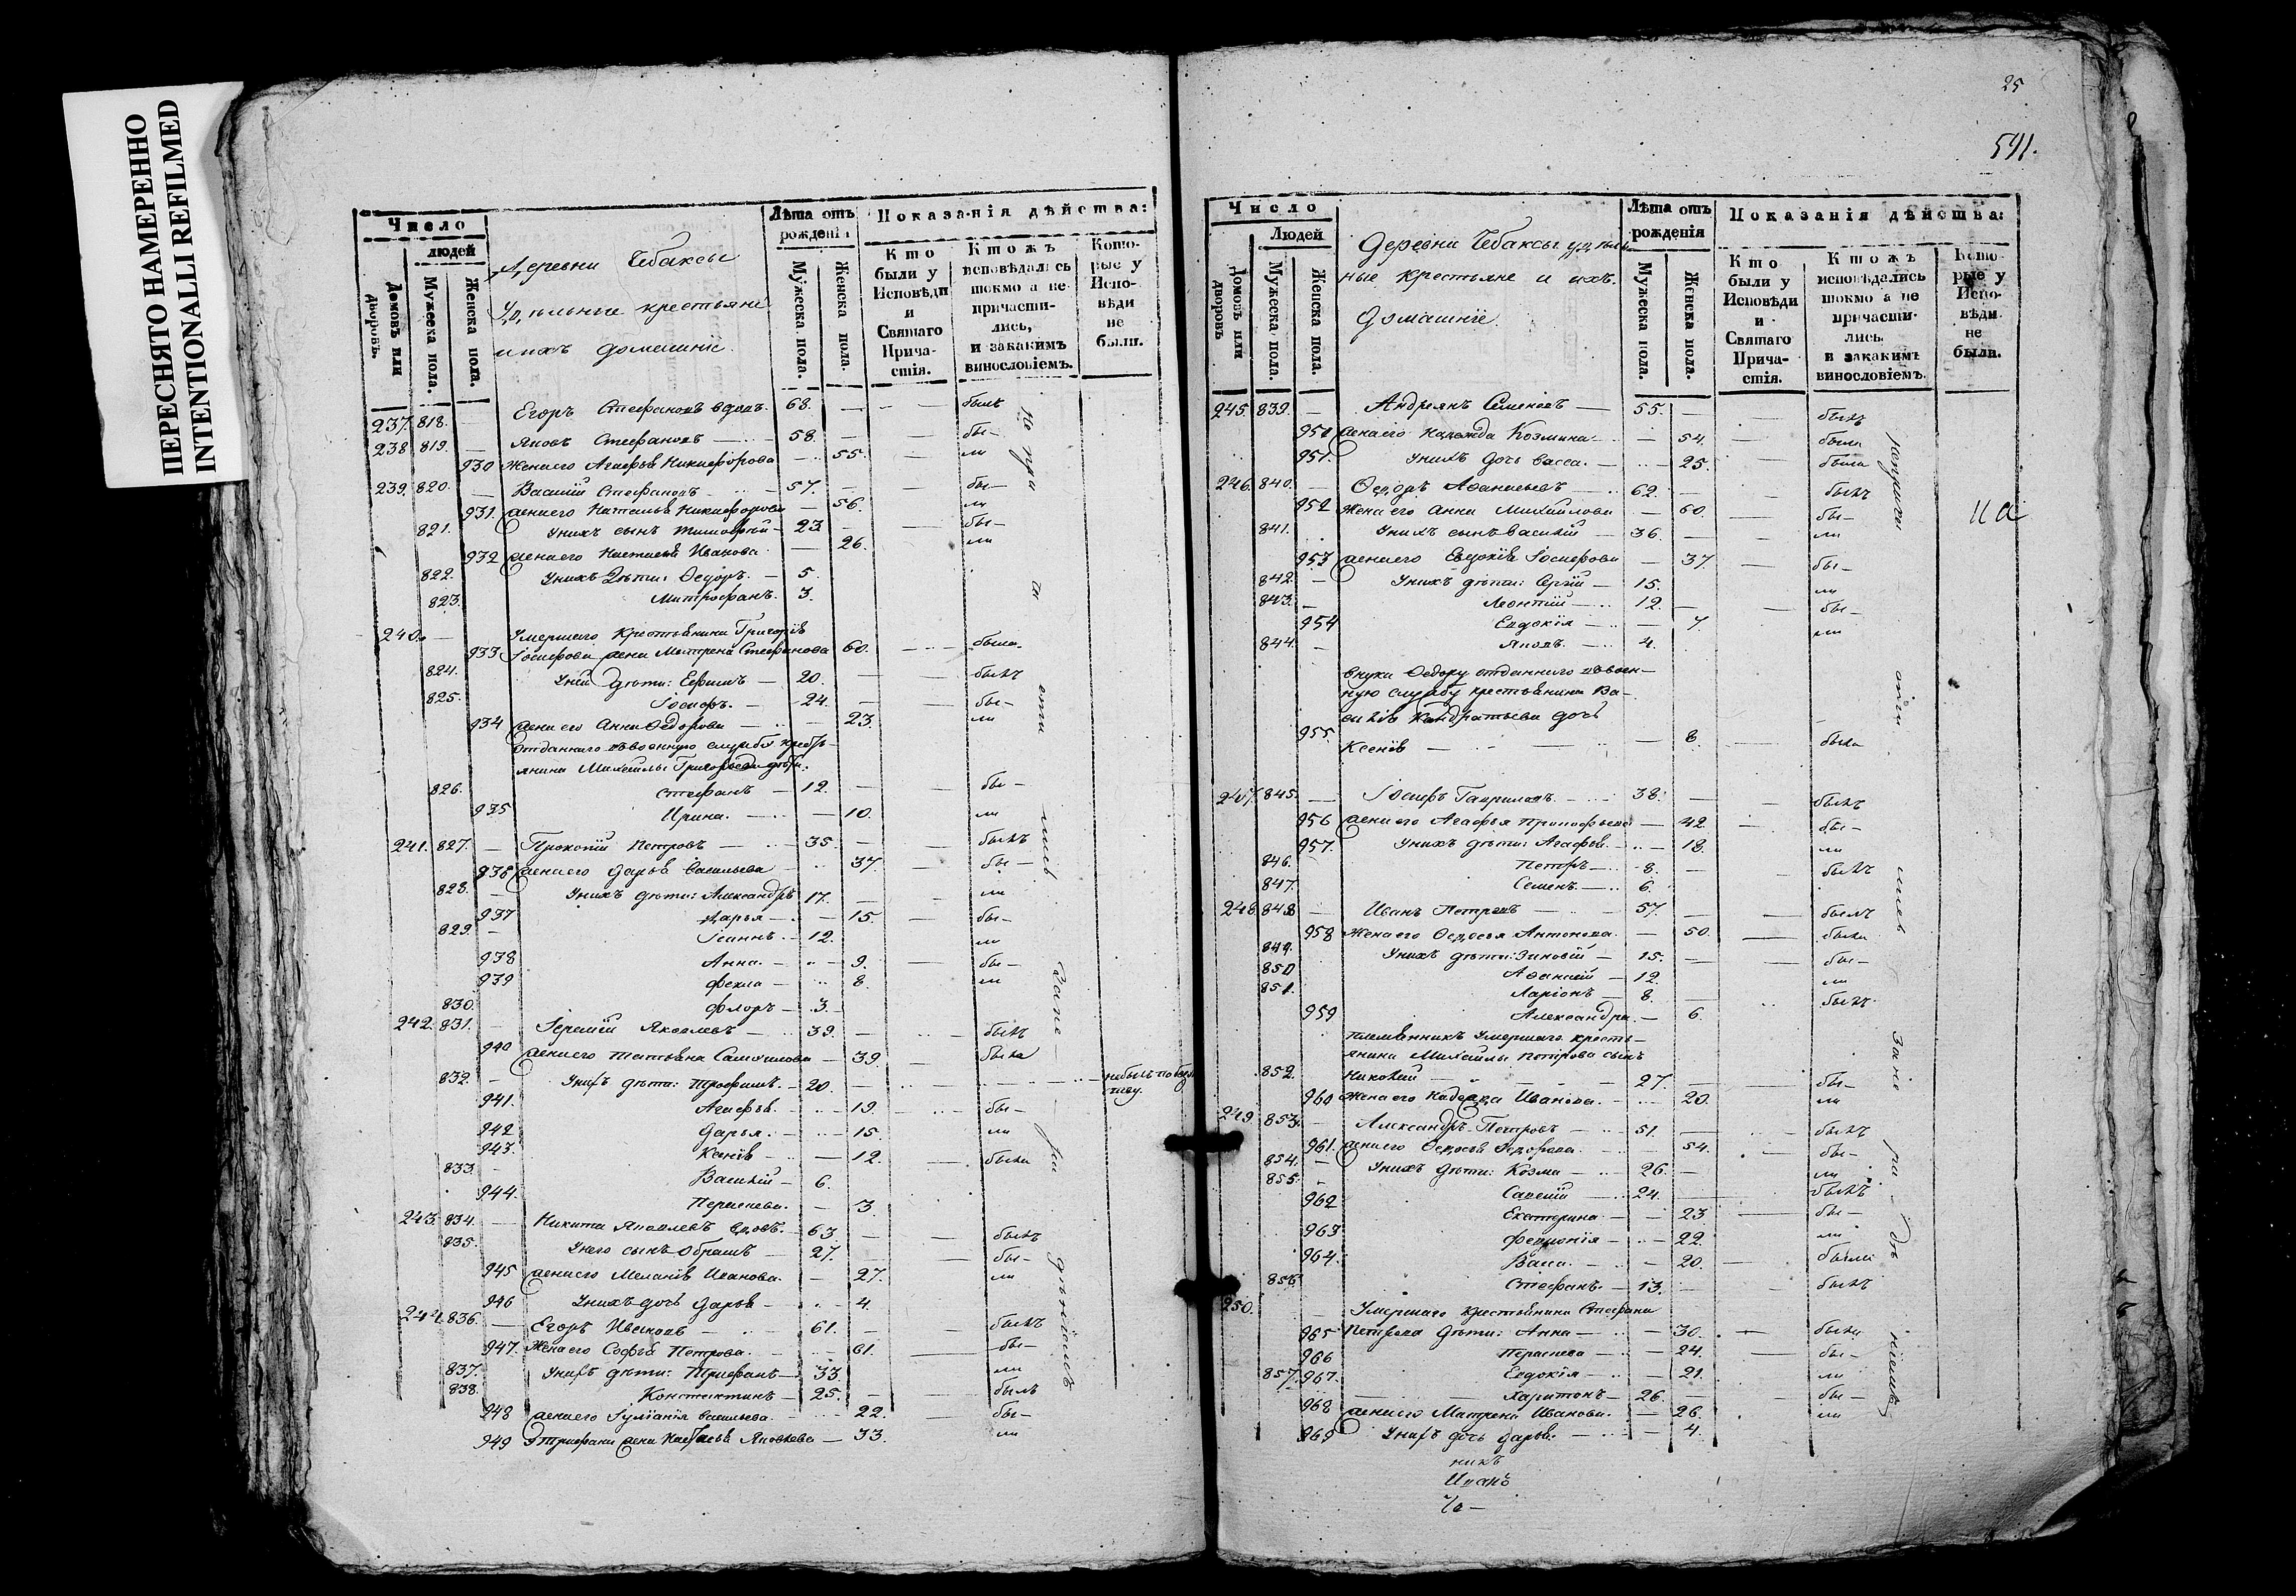 ПЕРЕСНЯТО НАМЕРЕННО
INTENTIONALLI REFILMED
Число
людей
Домовъ или дворовъ.
Мужеска пола.
Женска пола.
Деревни Чебаксы
Удѣльные крестьяне
и ихъ домашніе.
Лѣта отъ рожденія
Мужеска пола.
Женска пола.
Показанія дѣйства:
Кто были у Исповѣди и Святаго Причастія.
Ктожъ исповѣдались токмо а не причастились, и закакимъ винословіемъ.
Которые у Исповѣди не были.
237. 818. — Егоръ Стефановъ вдовъ. 68. — — былъ
238 819. — Яковъ Стефановъ — 58. — — бы-
930 Жена его Агафья Никифорова — 55. — ли
239. 820. — Василій Стефановъ — 57. — — бы-
931. Жена его Наталья Никифорова — 56. ли
821. Унихъ сынъ Тимофей — 23 — — бы-
932 Жена его Настасья Иванова — 26. ли
822. Унихъ Дѣти: Ѳедоръ. — 5.
823. Митрофанъ. 3.
240. — Умершаго Крестьянина Григорія
933 Іосифова жена Матрена Стефанова 60. — была.
824. Уней дѣти: Ефимъ — 20. — — былъ
825. Іосифъ. — 24. — — бы-
934 Жена его Анна Ѳедорова — — 23. ли
Отданнаго въ военную службу кресть-
янина Михайлы Григорьева дѣти:
826. Стефанъ — 12. — — бы-
935 Ирина. — — 10. ли
241. 827. — Прокопій Петровъ — 35. — — былъ
936 Жена его Дарья Васильева 37. — бы-
828. — Унихъ дѣти: Александръ 17. — — ли
937 Дарья — — 15 — бы-
829. — Іоаннъ. — 12. ли
938 Анна. — — 9. — бы-
939 Фекла — 8. ли
830. Флоръ — 3. —
242. 831. — Іеремій Яковлевъ — 39. — — былъ
940 Жена его Татьяна Самойлова — 39. — была
832. — Унихъ дѣти: Трофимъ. — 20. — не былъ по
941. Агафья. — 19. — бы-
942 Дарья. — 15. ли
943. Ксенія — — 12. — была
833. — Василій — 6.
944. Парасковья. — 3.
243. 834. — Никита Яковлевъ вдовъ. — 63. — — былъ
835. Унего сынъ Абрамъ — 27. — — бы-
945 Жена его Меланія Иванова. — 27. ли
946 Унихъ дочь Дарья — 4.
244. 836. — Егоръ Ивановъ — 61. — — былъ
947. Жена его Софья Петрова. — 61. — бы-
837. Унихъ дѣти: Трифанъ — 33. ли
838. Константинъ — 25. — — былъ
948 Жена его Іуліанія Васильева. — 22. — бы-
949 Трифана жена Настасья Яковлева — 33. ли
25
591.
Число
Людей
Домовъ или дворовъ
Мужеска пола.
Женска пола.
Деревни Чебаксы удѣль-
ные крестьяне и ихъ.
Домашніе.
Лѣта отъ рожденія
Мужеска пола.
Женска пола.
Показанія дѣйства:
Кто были у Исповѣди и Святаго Причастія.
Ктожъ исповѣдались токмо а не причастились. и закакимъ винословіемъ.
Которые у Исповѣди не были.
245. 839. — Андреянъ Семеновъ — 55. — — былъ
950 Жена его Надежда Козмина — 54. — была
951. Унихъ дочь Васса. — 25. — была
246. 840. — Ѳедоръ Аѳанасьевъ — 62. — — былъ
952 Жена его Анна Михайлова — 60. — бы-
841. Унихъ сынъ Василій — 36. — — ли
953 Жена его Евдокія Іосифова — 37. — бы-
842. — Унихъ дѣти: Сергій — 15. ли
843. — Леонтій — 12. — — бы-
954 Евдокія — — 7. ли
844. — Яковъ. — 4.
Внука Ѳедору отданнаго въ воен-
ную службу крестьянина Ва-
силія Кандратьева дочь
955. Ксенія — — 8. — была
247. 845. — Іосифъ Гавриловъ. — 38. — — былъ
956 Жена его Агафья Прокофьева — 42. — бы-
957. Унихъ дѣти: Агафья. — 18. ли
846. Петръ — 8. — — былъ
847. Семенъ. — 6.
248. 848 — Иванъ Петровъ — 57. — — былъ
958 Жена его Ѳедосья Антонова. — 50. — была
849. Унихъ дѣти: Зиновій — 15. — — бы-
850 Аѳанасій — 12. ли
851. Ларіонъ — 8. — былъ
959 Александра. — 6.
племянникъ Умершаго кресть-
янина Михайлы Петрова сынъ
852. Николай — 27. — — бы-
960 Жена его Надежда Иванова. — 20. ли
249. 853. — Александръ Петровъ — 51. — былъ
961. Жена его Ѳедосья Ѳедорова. — 54. — бы-
854. — Унихъ дѣти: Козма — 26. — ли
855. — Савелій — 24. — — былъ
962 Екатерина — — 23 — бы-
963 Февронія — 22. ли
964. Васса. — 20. — были
856. Стефанъ. — 13. — — былъ
250. — Умершаго крестьянина Стефана
965 Петрова дѣти: Анна — — 30. — была
966 Парасковья — 24. — бы-
967. Евдокія — 21. ли
857. Харитонъ — 26. — — бы-
968 Жена его Матрена Иванова. — 26. ли
969 Унихъ дочь Дарья. — — 4.
никъ
Иванъ